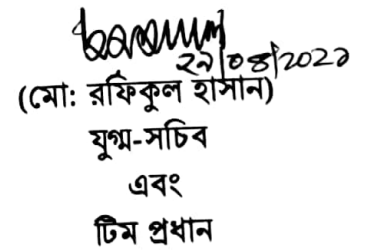 ২৯/০৪/২০২১
(মো: রফিকুল হাসান)
যুগ্ম-সচিব
এবং
টিম প্রধান